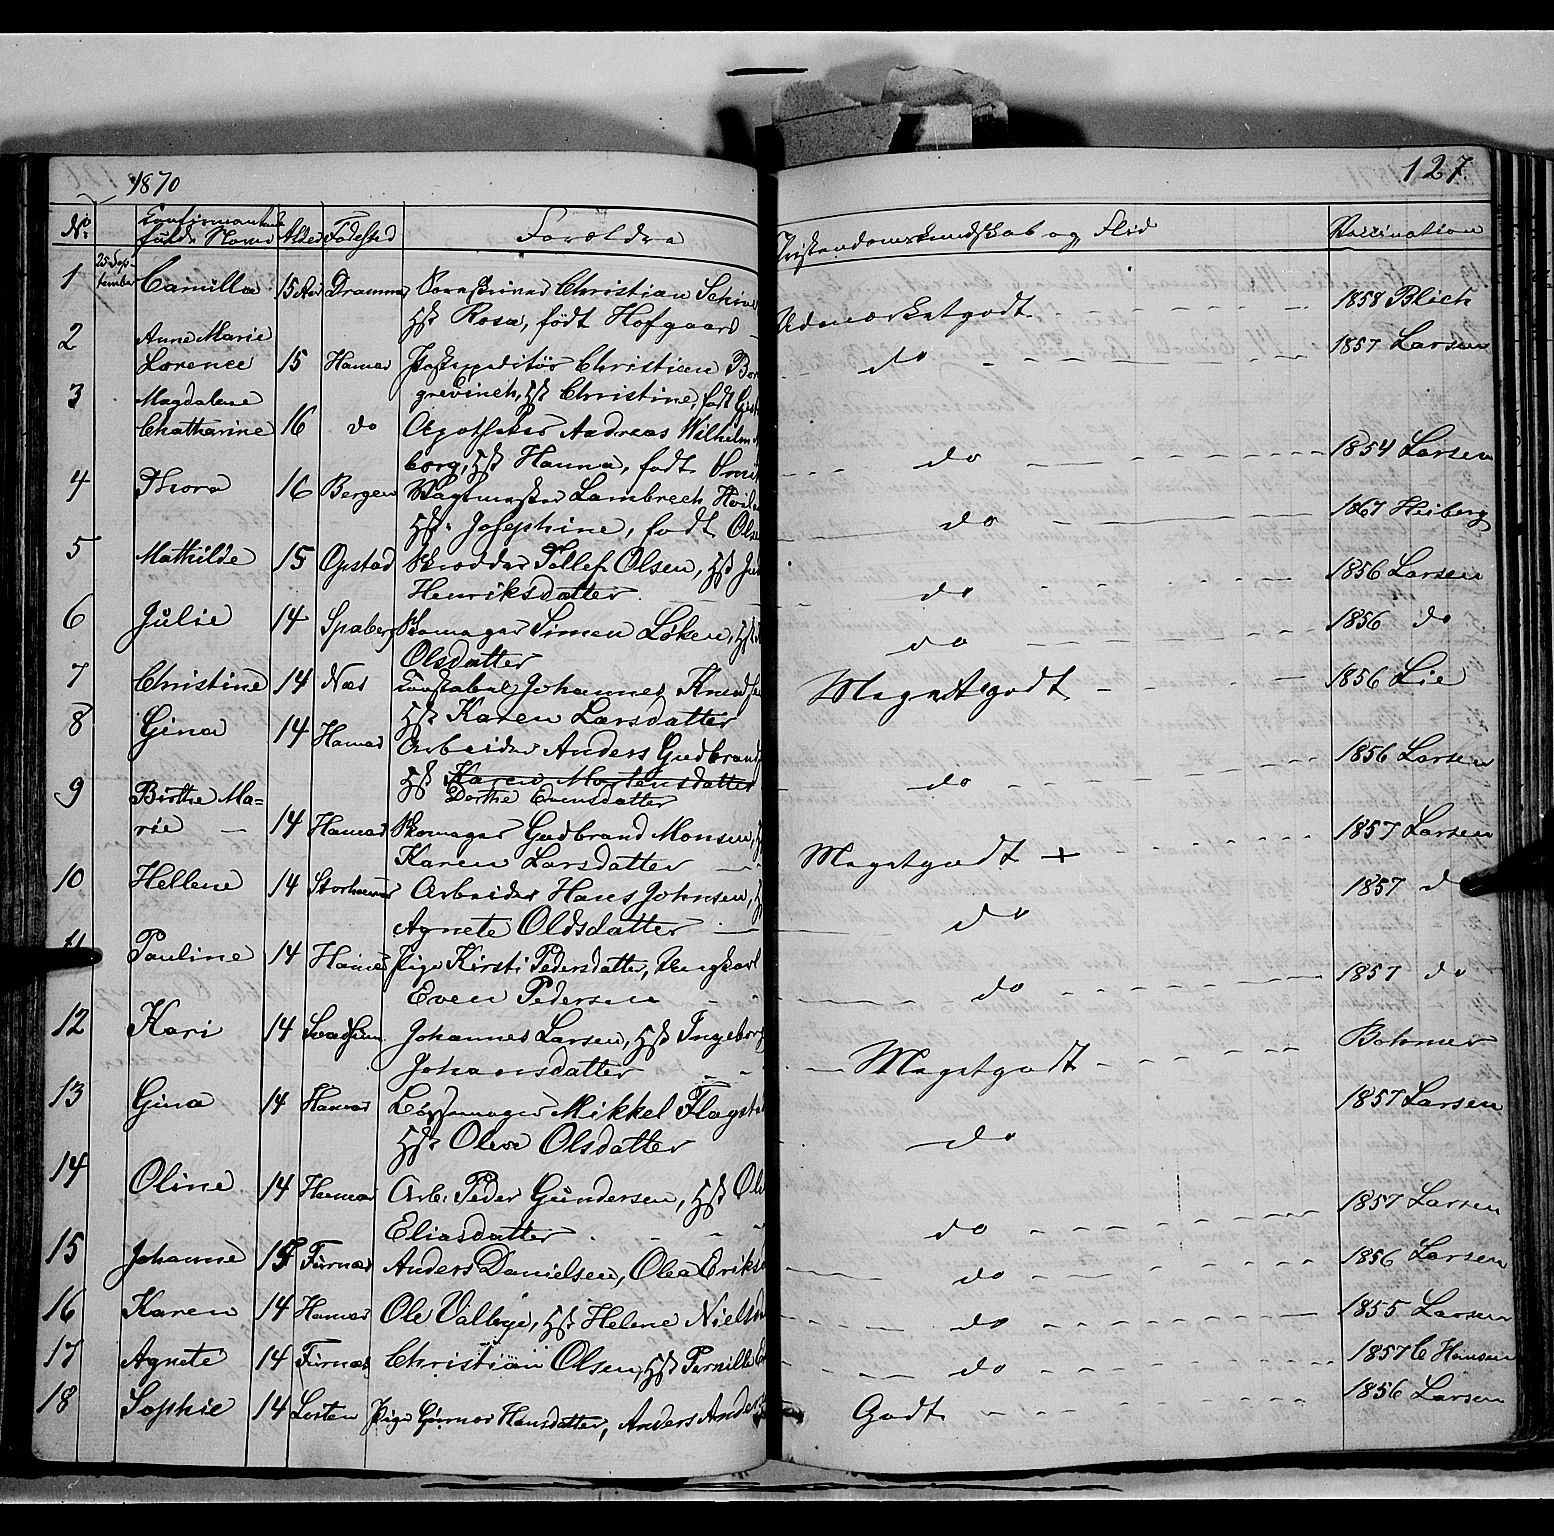 1870
127
No. Confirmantens fulde Navn Alder Fødested Forældre Kristendomskundskab og Flid Vaccination
25 September
1 Camilla 15 Aar Drammen Christian
Hst Rosa, født Hofgaard Udmærketgodt 1858 Blich
2 Anne Marie
Lorence 15 Hamar Postexpeditør Christian do 1857 Larsen
grevinck, Hst Christine, født
3 Magdalene
Chatharine 16 do Apotheker Andreas Wilhelm
borg, Hst Hanna, født do 1854 Larsen
4 Thora 16 Bergen Vagtmester Lambrech
Hst. Josephine, født do 1867 Heiberg
5 Mathilde 15 Opstad Skrædder Tollef Olsen, Hst
Henriksdatter do 1856 Larsen
6 Julie 14 Spaberg Skomager Simen Løken, Hst
Olsdatter do 1856 do
7 Christine 14 Næs Constabel Johannes
Hst Karen Larsdatter Megetgodt 1856 Lie
8 Gina 14 Hamar Arbeider Anders Gudbrand
Hst Karen Mortensdatter
Dorthe Evensdatter do 1856 Larsen
9 Birthe Ma=
rie 14 Hamar Skomager Gudbrand Monsen,
Karen Larsdatter Megetgodt + 1857 Larsen
10 Hellene 14 Storhamar Arbeider Hans Johnsen,
Agnete Oldsdatter do 1857 do
11 Pauline 14 Hamar Pige Kirsti Pedersdatter, Ungkarl
Even Pedersen do 1857 do
12 Kari 14 Johannes Larsen, Hst Ingeborg
Johansdatter Megetgodt Bohmer
13 Gina 14 Hamar Mikkel Flagstad
Hst Olea Olsdatter do 1857 Larsen
14 Oline 14 Hamar Arb. Peder Gundersen, Hst
Eliasdatter do 1857 Larsen
15 Johanne 15 Furnæs Anders Danielsen, Olea Eriks do 1856 Larsen
16 Karen 14 Hamar Ole Valbye, Hst Helene Niels do 1855 Larsen
17 Agnete 14 Furnæs Christian Olsen, Hst Pernille do 1857 C Hansen
18 Sophie 14 Løiten Pige Hansdatter, Anders Anders Godt 1856 Larsen